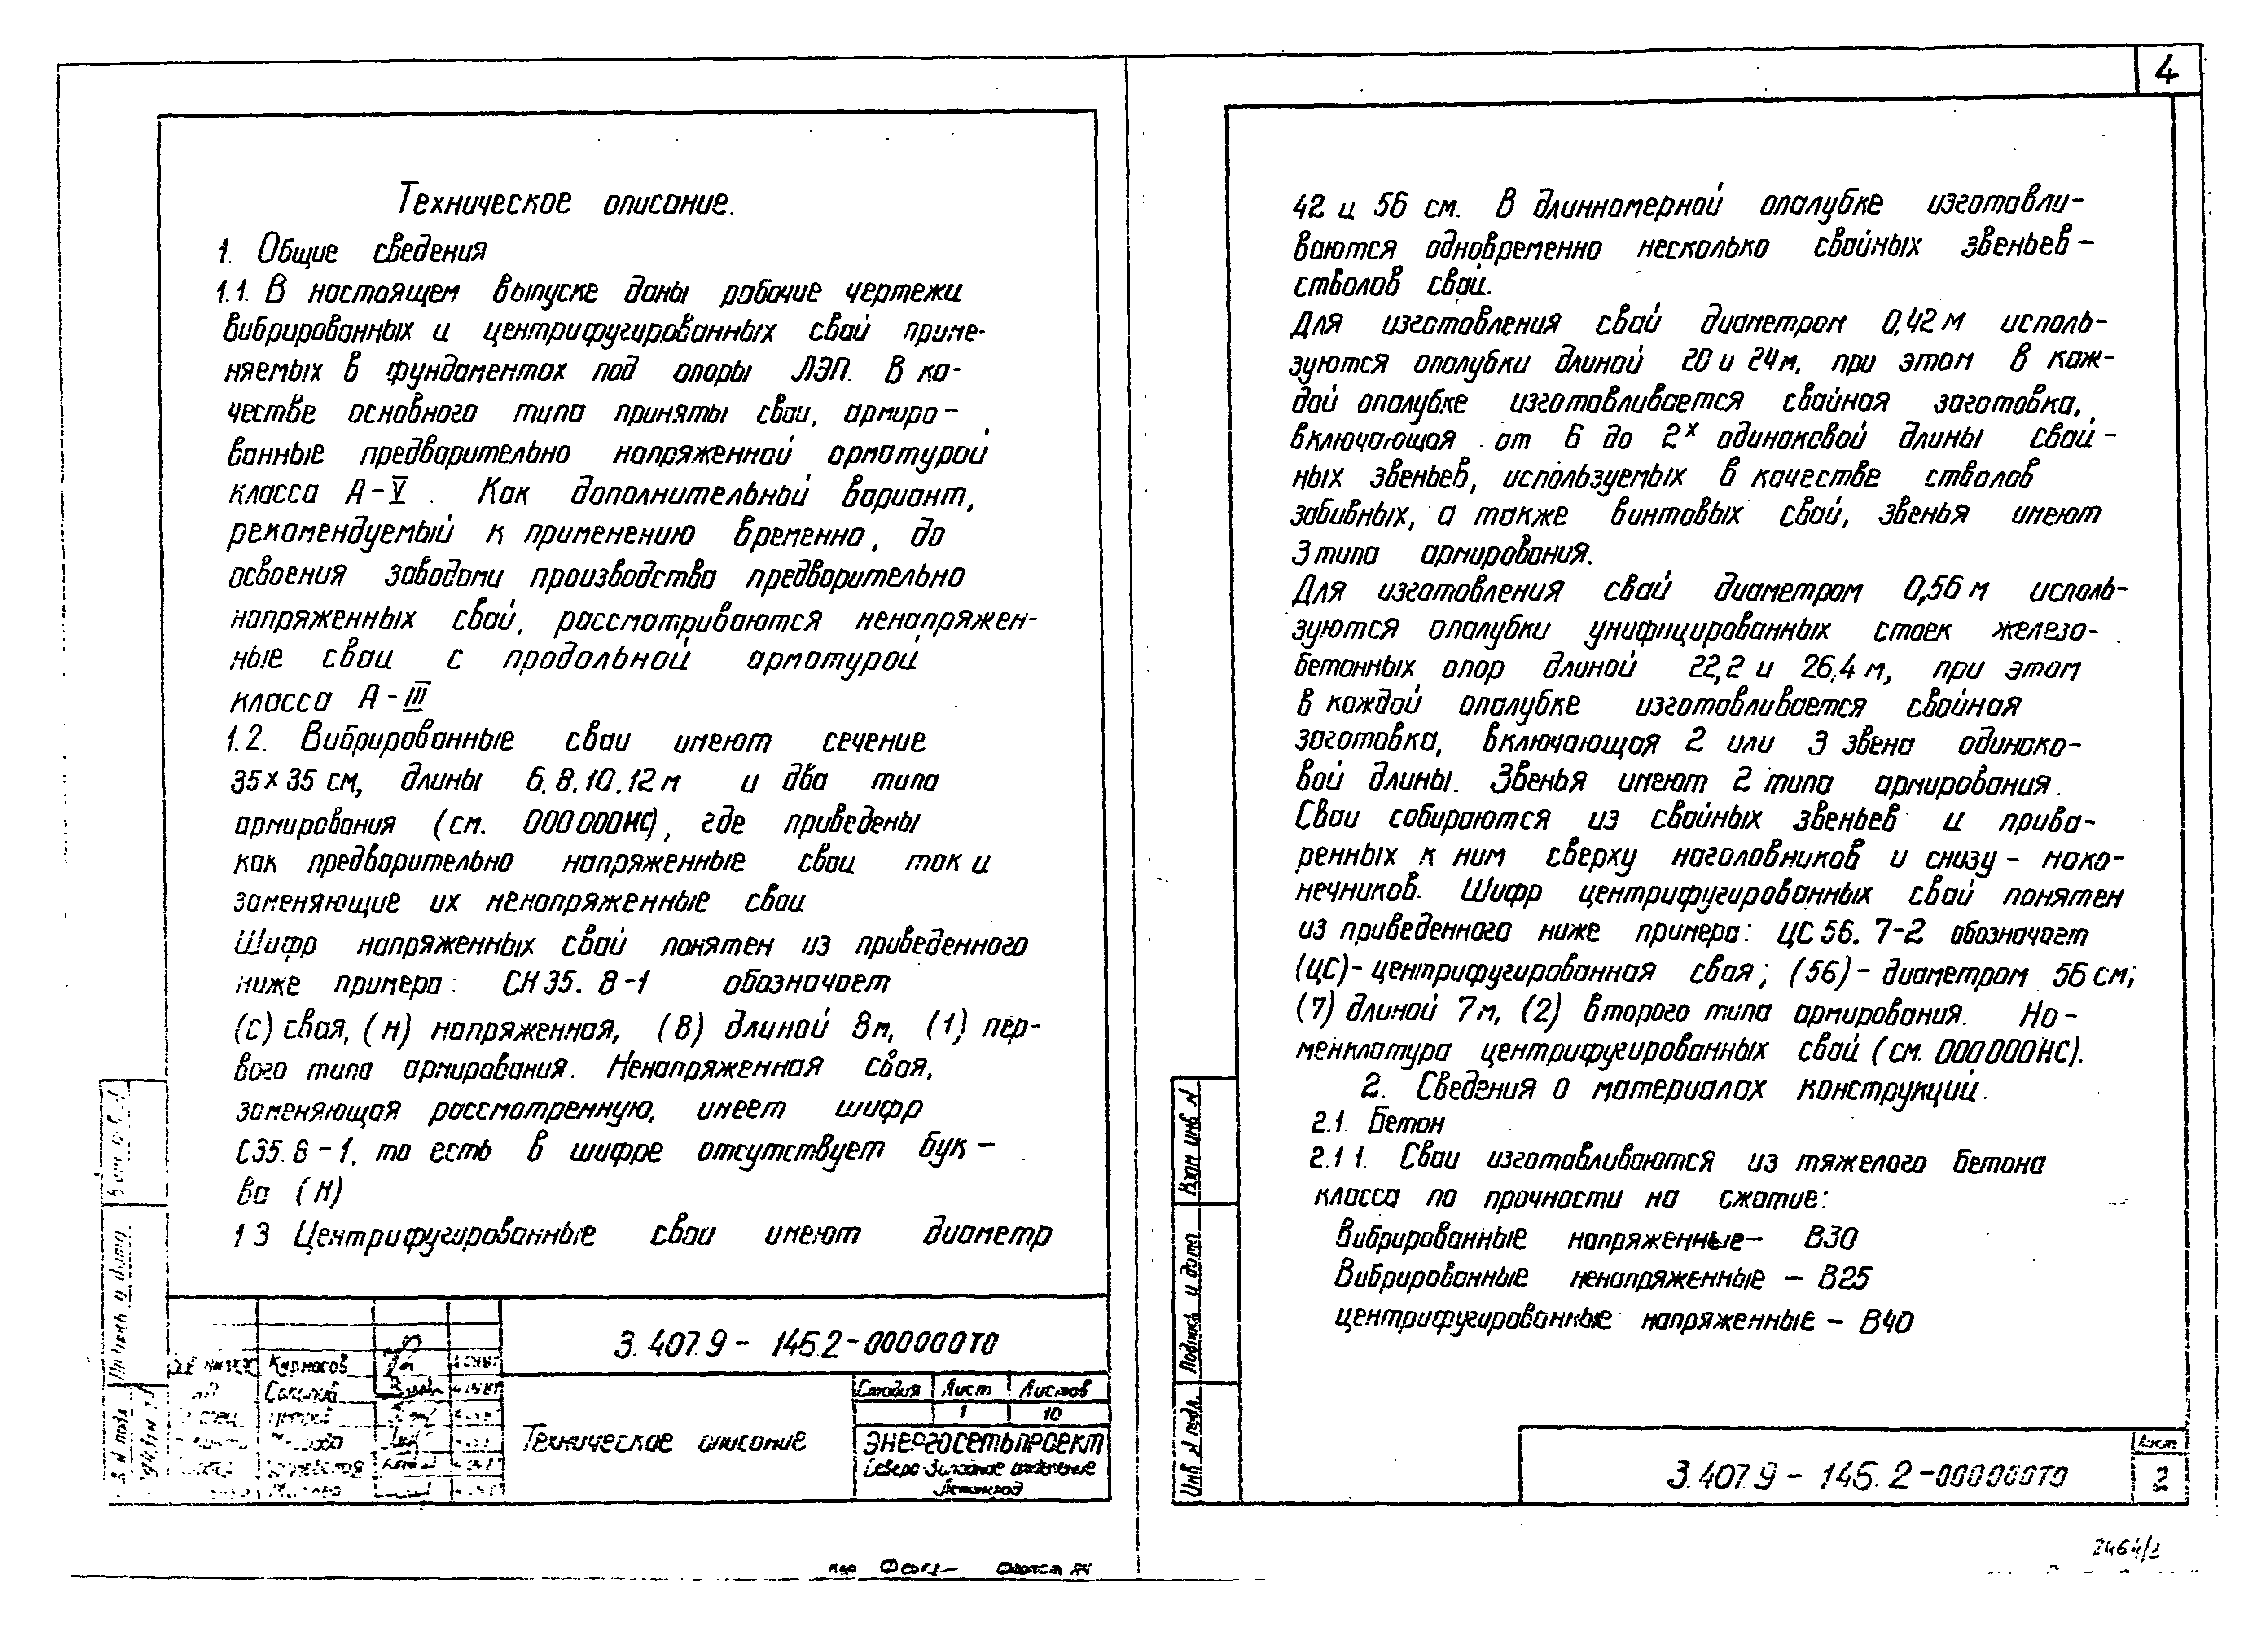 4
Техническое описание.
1. Общие сведения
1.1. В настоящем выпуске даны рабочие чертежи
вибрированных и центрифугированных свай приме-
няемых в фундаментах под опоры ЛЭП. В ка-
честве основного типа приняты сваи, армиро-
ванные предварительно напряженной арматурой
класса А-V. Как дополнительный вариант,
рекомендуемый к применению временно, до
освоения заводами производства предварительно
напряженных свай, рассматриваются ненапряжен-
ные сваи с продольной арматурой
класса А-III
1.2. Вибрированные сваи имеют сечение
35×35 см, длины 6.8.10.12м и два типа
армирования (см. 000000НС), где приведены
как предварительно напряженные сваи так и
заменяющие их ненапряженные сваи
Шифр напряженных свай понятен из приведенного
ниже примера: СН35.8-1 обозначает
(С) свая, (Н) напряженная, (8) длиной 8м, (1) пер-
вого типа армирования. Ненапряженная свая,
заменяющая рассмотренную, имеет шифр
С35.8-1, то есть в шифре отсутствует бук-
ва (Н)
1 3 Центрифугированные сваи имеют диаметр
3.407.9-146.2-000000ТО
Курносов
Стадия Лист Листов
1 10
Техническое описание
ЭНЕРГОСЕТЬПРОЕКТ
Северо-Западное отделение
Ленинград
Формат А4
42 и 56 см. В длинномерной опалубке изготавли-
ваются одновременно несколько свайных звеньев-
стволов свай.
Для изготовления свай диаметром 0,42м исполь-
зуются опалубки длиной 20 и 24м, при этом в каж-
дой опалубке изготавливается свайная заготовка,
включающая от 6 до 2х одинаковой длины свай-
ных звеньев, используемых в качестве стволов
забивных, а также винтовых свай, звенья имеют
3 типа армирования.
Для изготовления свай диаметром 0,56м исполь-
зуются опалубки унифицированных стоек железо-
бетонных опор длиной 22,2 и 26,4м, при этом
в каждой опалубке изготавливается свайная
заготовка, включающая 2 или 3 звена одинако-
вой длины. Звенья имеют 2 типа армирования.
Сваи собираются из свайных звеньев и прива-
ренных к ним сверху наголовников и снизу - нако-
нечников. Шифр центрифугированных свай понятен
из приведенного ниже примера: ЦС56.7-2 обозначает
(ЦС)-центрифугированная свая; (56)-диаметром 56см;
(7) длиной 7м, (2) второго типа армирования. Но-
менклатура центрифугированных свай (см. 000000НС).
2. Сведения о материалах конструкций.
2.1. Бетон
2.1 1. Сваи изготавливаются из тяжелого бетона
класса по прочности на сжатие:
Вибрированные напряженные- В30
Вибрированные ненапряженные - В25
центрифугированные напряженные - В40
Взам инв N
Подпись и дата
Инв N подл.
3.407.9-146.2-000000ТО
Лист
2